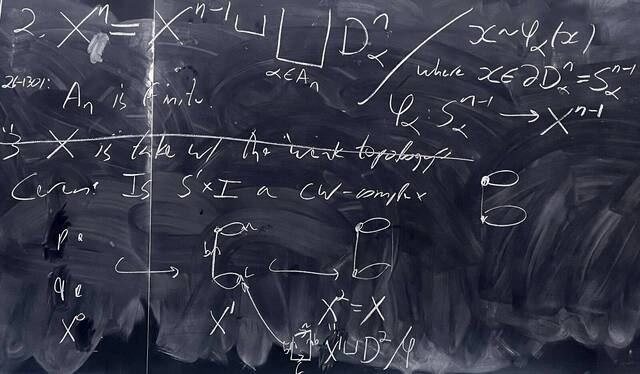 2. Xⁿ = Xⁿ⁻¹ ⊔ ⨆ Dⁿ_α / x ~ φ_α(x)
α∈Aₙ
where x ∈ ∂Dⁿ_α = Sⁿ⁻¹_α
φ_α : Sⁿ⁻¹_α → Xⁿ⁻¹
26-1301:
Aₙ is finite.
3 X is take w/ the weak topology
Is S¹×I a CW-complex
p
q
X⁰
b
a
c
X¹
X² = X
X¹ ⊔ D² / φ